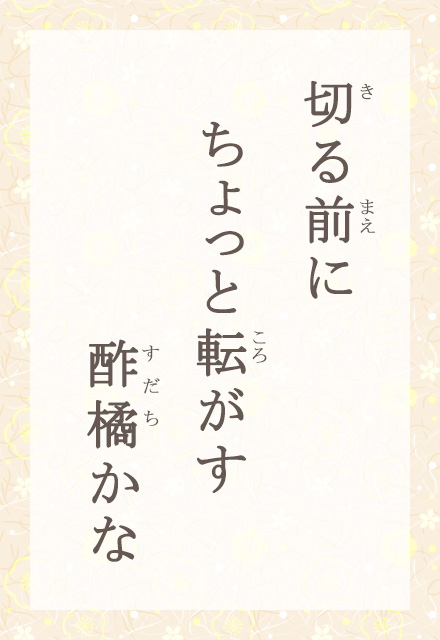 切る前に
ちょっと転がす
酢橘かな
き
まえ
ころ
すだち